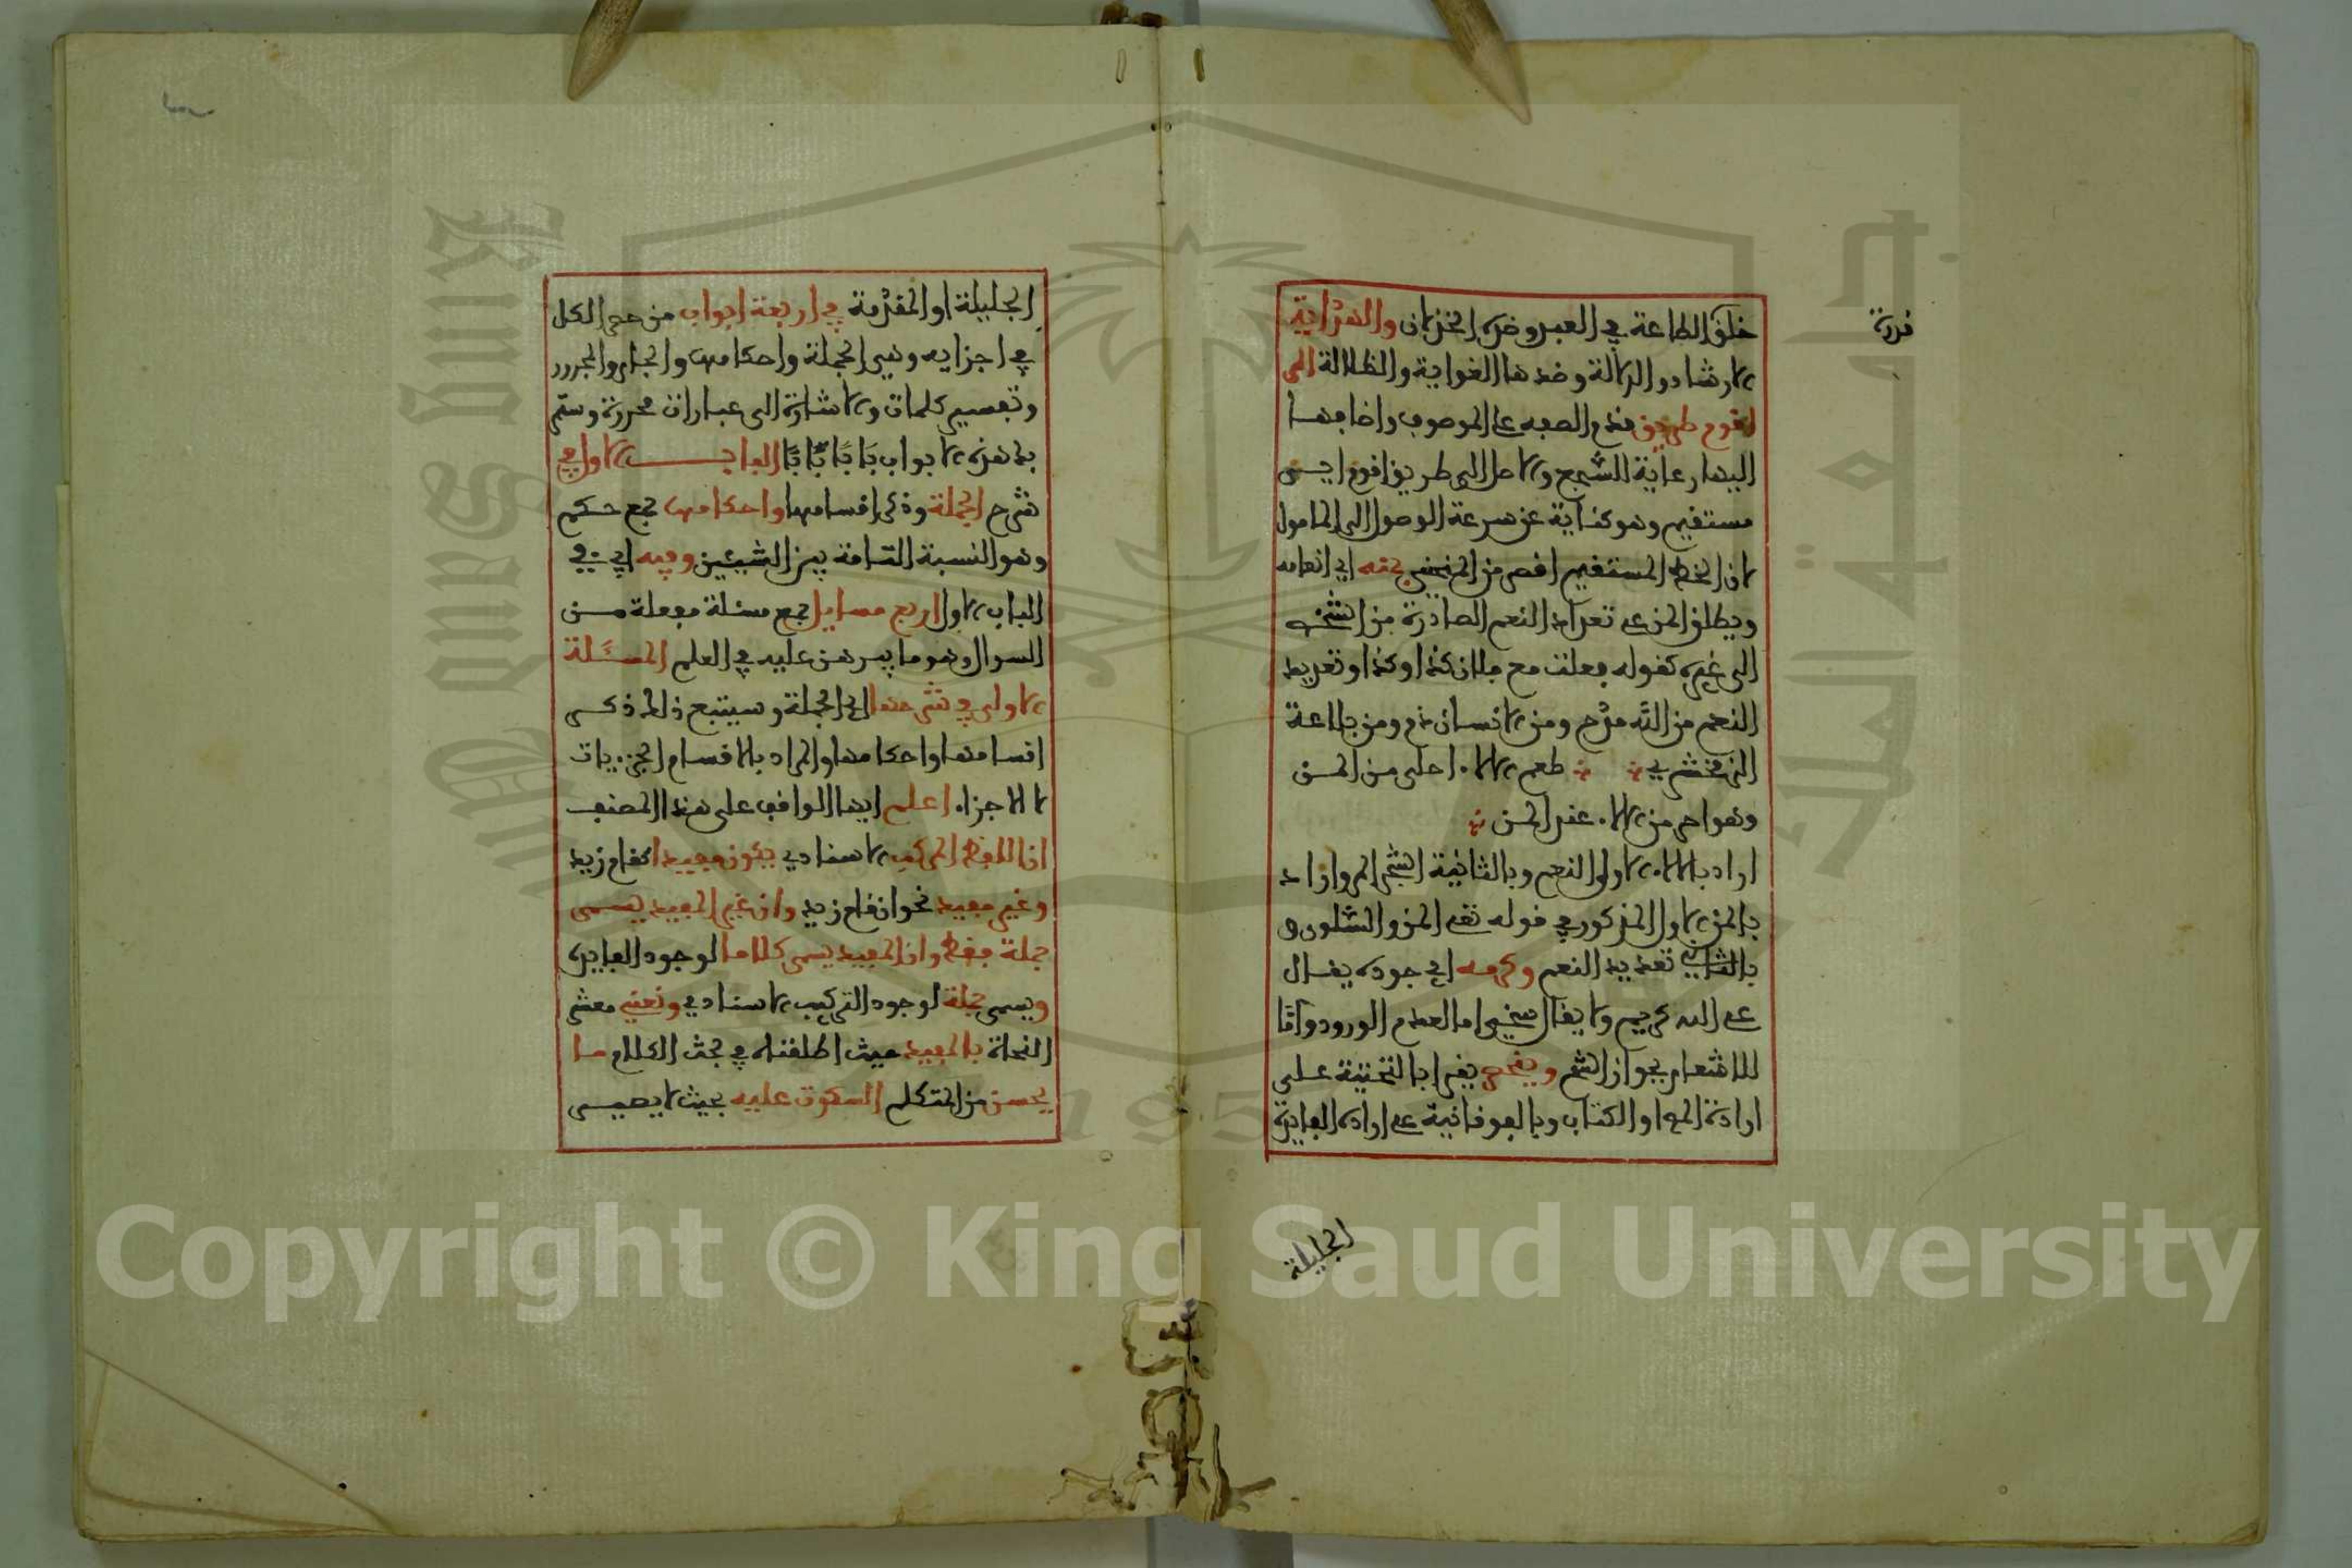 قدرة
خلق الطاعة في العبد وضده الخذلان والهداية
الارشاد والدلالة وضدها الغواية والظلالة الى
اقوم طريق قدم الصفة على الموصوف واضافها
اليها رعاية للسجع والاصل الى طريق اقوم اي
مستقيم وهو كناية عن سرعة الوصول الى المامول
لان الخط المستقيم اقصر من المنحني بمنه اي انعامه
ويطلق المن على تعداد النعم الصادرة من الشخص
الى غيره كقوله فعلت مع فلان كذا وكذا وتعديد
النعم من الله مدح ومن الانسان ذم ومن بلاغة
الزمخشري طعم الالاء احلى من المن
وهو امر من الالاء عند المن
اراد بالالاء الاولى النعم وبالثانية الشجر المر واراد
بالمن الاول المذكور في قوله تعالى المن والسلوى و
بالثاني تعديد النعم وكرمه اي جوده يقال
على الله كريم ولا يقال سخي اما لعدم الورود واما
للاشعار بجواز الشح وينحصر يقرا بالتحتية على
ارادة المؤلف او الكتاب وبالفوقانية على ارادة الفايدة
الجليلة
الجليلة او المقدمة في اربعة ابواب من حصر الكل
في اجزايه وهي الجملة واحكامها والجار والمجرور
وتفسير كلمات والاشارة الى عبارات محررة وستمر
بك هذه الابواب بابا بابا الباب الاول في
شرح الجملة وذكر اقسامها واحكامها جمع حكم
وهو النسبة التامة بين الشيئين وفيه اي في
الباب الاول اربع مسايل جمع مسئلة مفعلة من
السوال وهو ما يبرهن عليه في العلم المسئلة
الاولى في شرحها اي الجملة وسيتبع ذلك ذكر
اقسامها واحكامها والمراد بالاقسام الجزييات
لا الاجزاء اعلم ايها الواقف على هذا المصنف
ان اللفظ المركب الاسنادي يكون مفيدا كقام زيد
وغير مفيد نحو ان قام زيد وان غير المفيد يسمى
جملة فقط وان المفيد يسمى كلاما لوجود الفايدة
ويسمى جملة لوجود التركيب الاسنادي ونعني معشر
النحاة بالمفيد حيث اطلقناه في بحث الكلام ما
يحسن من المتكلم السكوت عليه بحيث لا يصير
Copyright © King Saud University